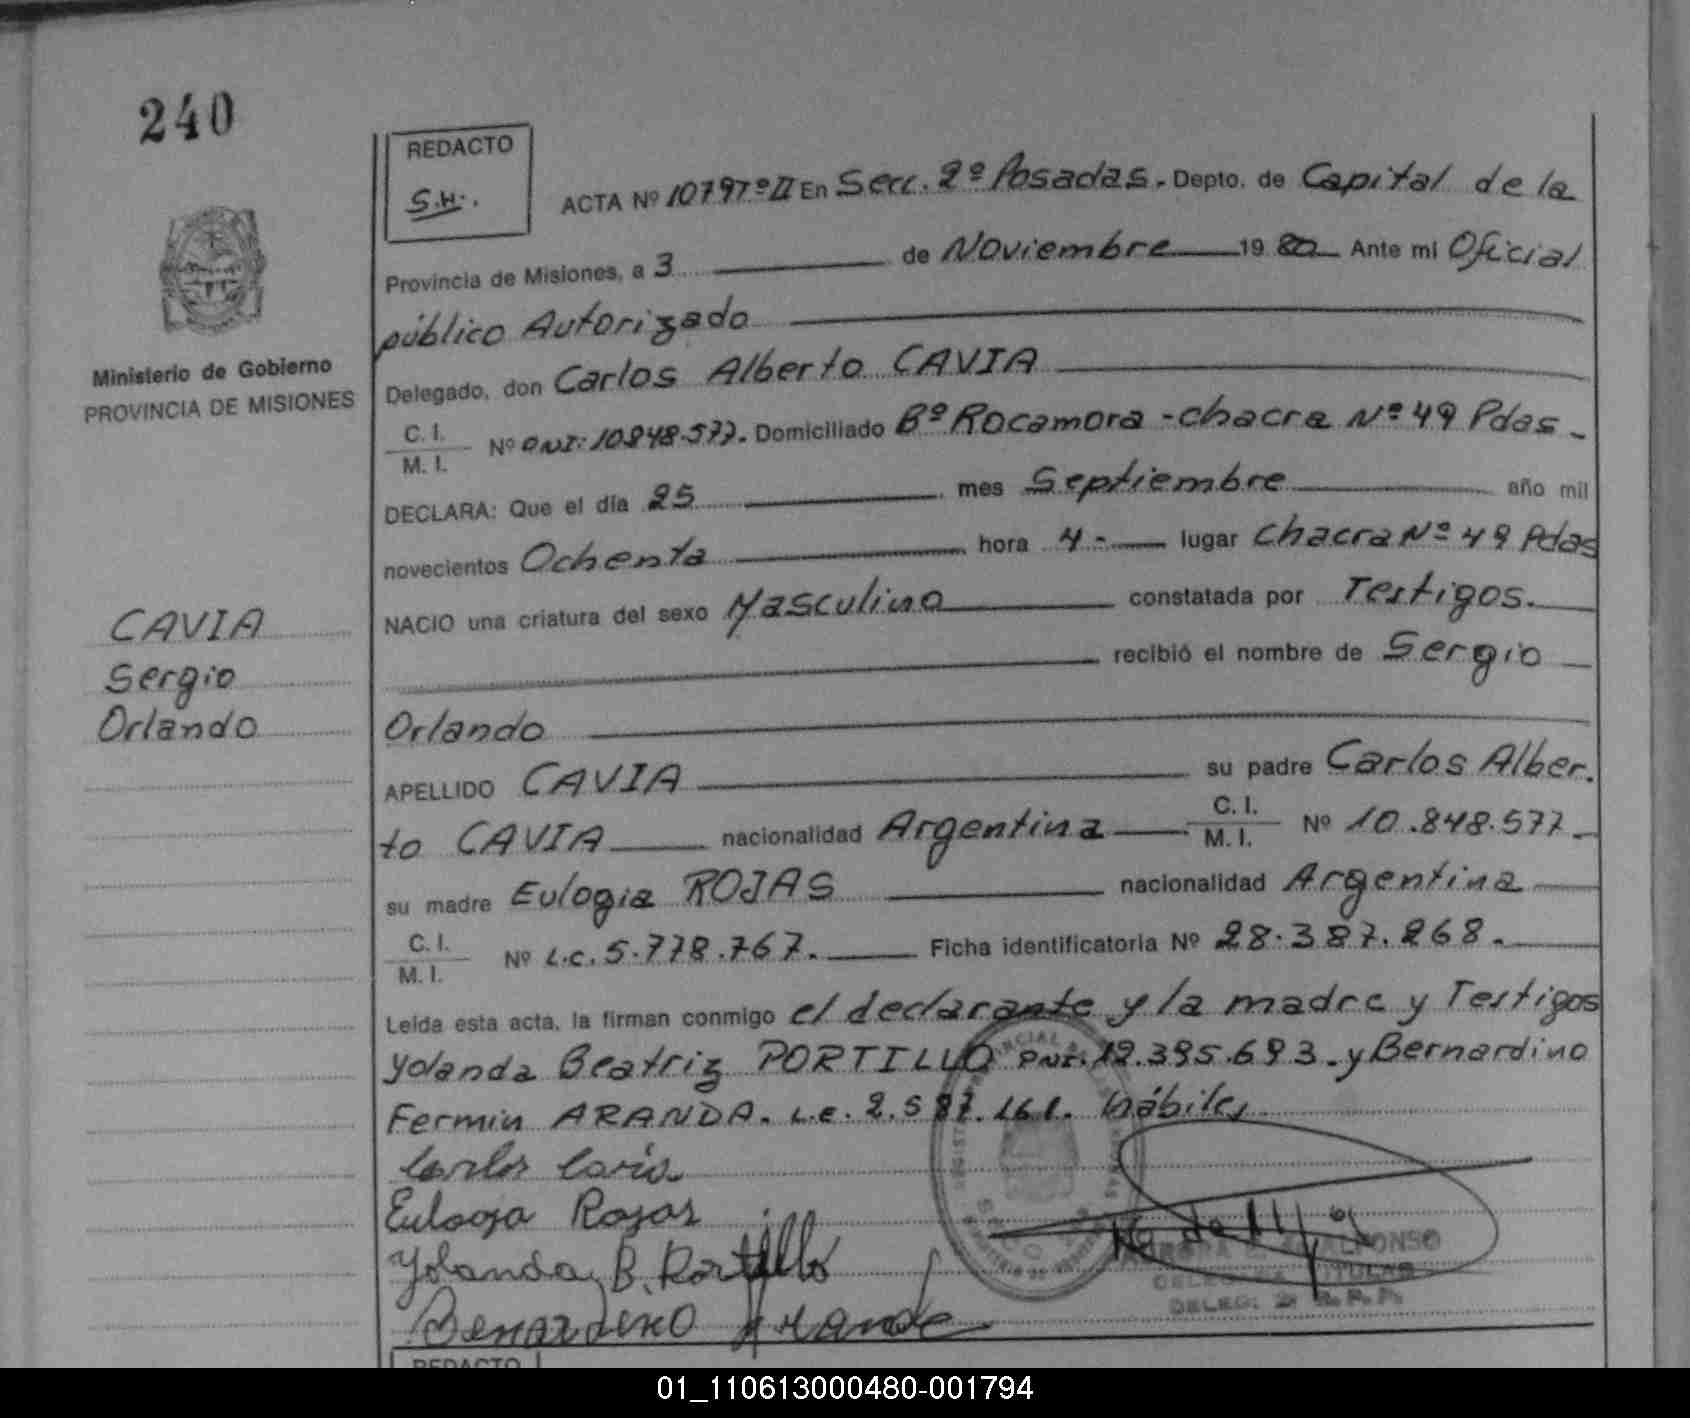 240
REDACTO
S.H.
ACTA Nº 10797º II En Secc. 2º Posadas. Depto. de Capital de la
Provincia de Misiones, a 3 de Noviembre 19 80 Ante mi Oficial
público Autorizado
Ministerio de Gobierno
PROVINCIA DE MISIONES
Delegado, don Carlos Alberto CAVIA
C. I.
M. I.
Nº DNI: 10.848.577. Domiciliado Bº Rocamora - chacra Nº 49 Pdas.
DECLARA: Que el día 25 mes Septiembre año mil
novecientos Ochenta hora 4- lugar Chacra Nº 49 Pdas
NACIO una criatura del sexo Masculino constatada por Testigos.
recibió el nombre de Sergio
Orlando
CAVIA
Sergio
Orlando
APELLIDO CAVIA su padre Carlos Alber.
to CAVIA nacionalidad Argentina C. I.
M. I. Nº 10.848.577
su madre Eulogia ROJAS nacionalidad Argentina
C. I.
M. I.
Nº L.C. 5.778.767. Ficha identificatoria Nº 28.387.268.
Leída esta acta, la firman conmigo el declarante y la madre y Testigos
Yolanda Beatriz PORTILLO DNI. 12.395.693. y Bernardino
Fermin ARANDA. L.E. 2.587.161. hábiles
Carlos Cavia
Eulogia Rojas
Yolanda B. Portillo
Bernardino Aranda
DELEGADA TITULAR
DELEG. 2ª R.P.P.
REDACTO
01_110613000480-001794